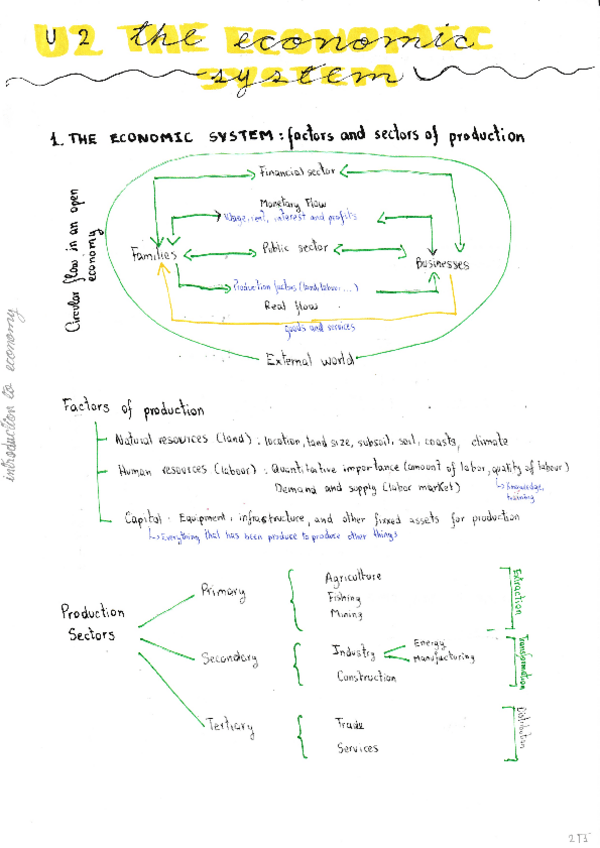 U2 the economic
system
1. THE ECONOMIC SYSTEM: factors and sectors of production
Circular flow in an open
economy
Financial sector
Monetary Flow
Wage, rent, interest and profits
Families
Public sector
Businesses
Production factors (land, labour...)
Real flow
goods and services
External world
introduction to economy
Factors of production
Natural resources (land): location, land size, subsoil, soil, coasts, climate
Human resources (labour): Quantitative importance (amount of labor, quality of labour)
Demand and supply (labor market)
Knowledge,
training
Capital. Equipment, infrastructure, and other fixxed assets for production
Everything that has been produce to produce other things
Production
Sectors
Primary
Agriculture
Fishing
Mining
Extraction
Secondary
Industry
Energy
Manufacturing
Construction
Transformation
Tertiary
Trade
Services
Distribution